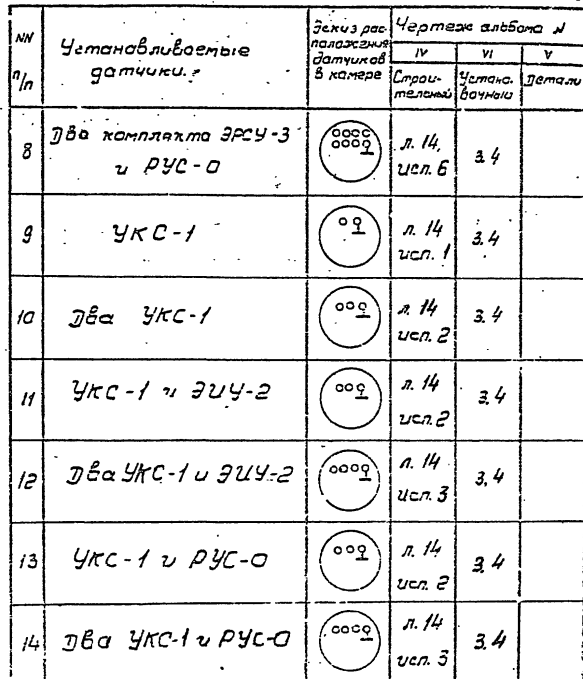 NN п/п
Устанавливаемые датчики.
Эскиз расположения датчиков в камере
Чертеж альбома N
IV
VI
V
Строительный
Установочный
Детали
8
Два комплекта ЭРСУ-3
и РУС-0
л. 14,
исп. 6
3.4
9
УКС-1
л. 14
исп. 1
3.4
10
Два УКС-1
л. 14
исп. 2
3.4
11
УКС-1 и ЭИУ-2
л. 14
исп. 2
3.4
12
Два УКС-1 и ЭИУ-2
л. 14
исп. 3
3.4
13
УКС-1 и РУС-0
л. 14
исп. 2
3.4
14
Два УКС-1 и РУС-0
л. 14
исп. 3
3.4